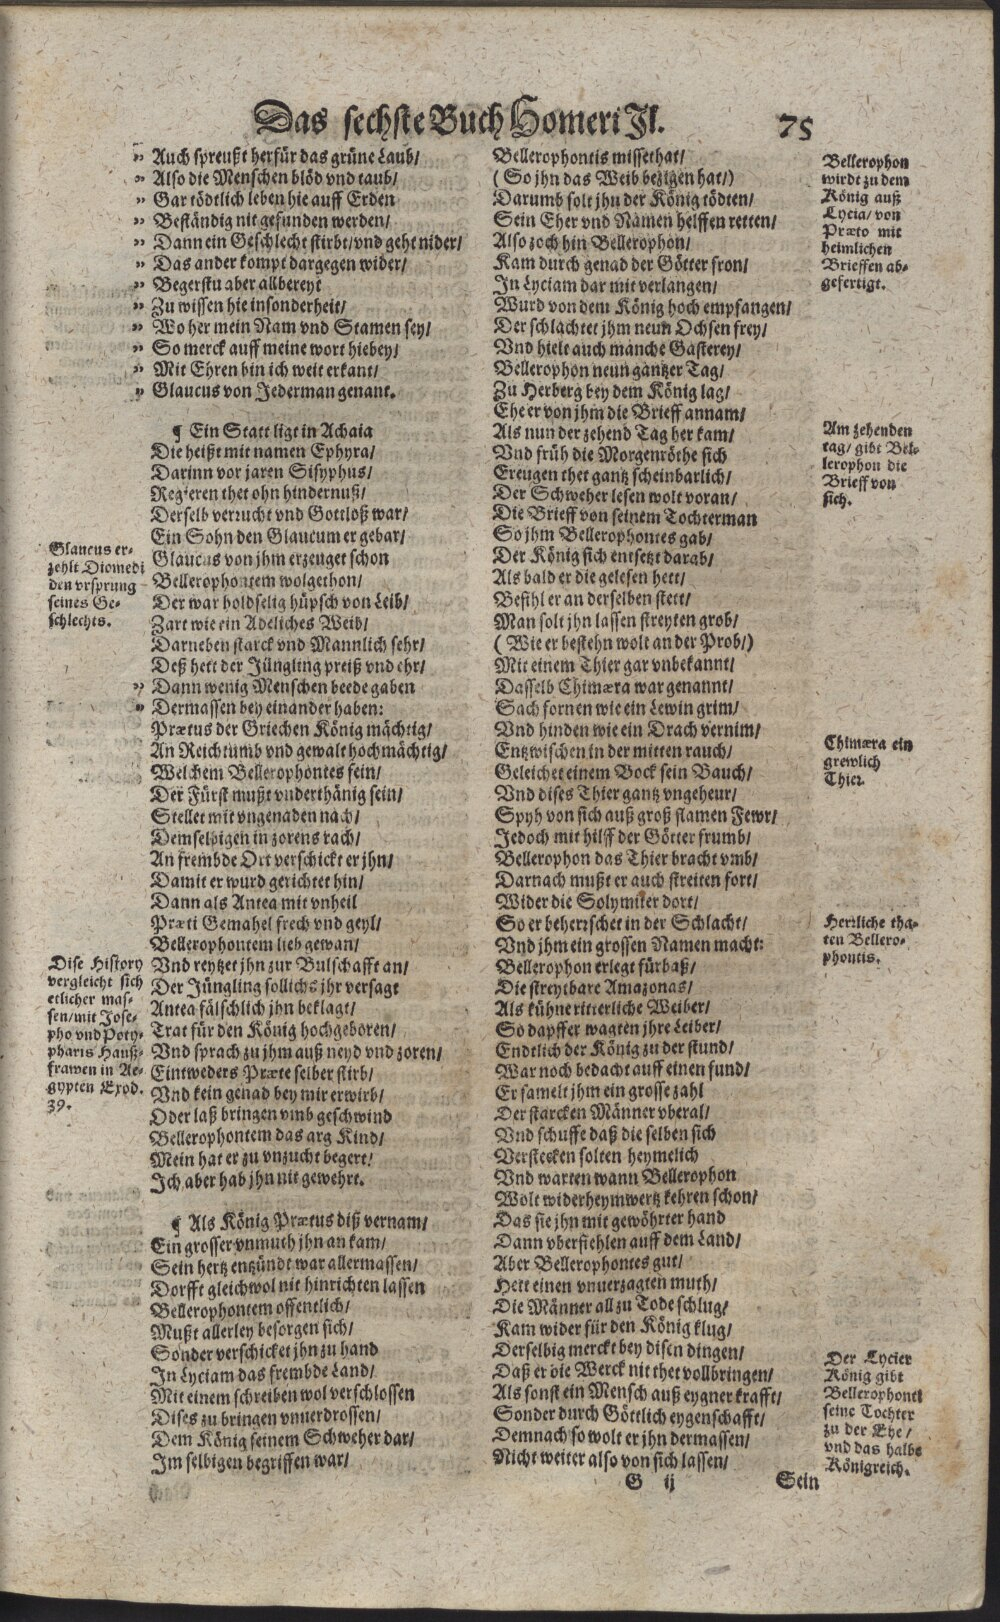 Das sechste Buch Homeri Jl. 75
„ Auch spreußt herfür das grüne Laub/
„ Also die Menschen blöd vnd taub/
„ Gar tödtlich leben hie auff Erden
„ Beständig nit gefunden werden/
„ Dann ein Geschlecht stirbt/vnd geht nider/
„ Das ander kompt dargegen wider/
„ Begerstu aber allbereyt
„ Zu wissen hie insonderheit/
„ Wo her mein Nam vnd Stamen sey/
„ So merck auff meine wort hiebey/
„ Mit Ehren bin ich weit erkant/
„ Glaucus von Jederman genant.
¶ Ein Statt ligt in Achaia
Die heißt mit namen Ephyra/
Darinn vor jaren Sisyphus/
Regieren thet ohn hindernuß/
Derselb verrucht vnd Gottloß war/
Ein Sohn den Glaucum er gebar/
Glaucus von jhm erzeuget schon
Bellerophontem wolgethon/
Der war holdselig hüpsch von Leib/
Zart wie ein Adeliches Weib/
Darneben starck vnd Mannlich sehr/
Deß hett der Jüngling preiß vnd ehr/
„ Dann wenig Menschen beede gaben
„ Dermassen bey einander haben:
Prætus der Griechen König mächtig/
An Reichtumb vnd gewalt hochmächtig/
Welchem Bellerophontes fein/
Der Fürst mußt vnderthänig sein/
Stellet mit vngenaden nach/
Demselbigen in zorens rach/
An frembde Ort verschickt er jhn/
Damit er wurd gerichtet hin/
Dann als Antea mit vnheil
Præti Gemahel frech vnd geyl/
Bellerophontem lieb gewan/
Vnd reytzet jhn zur Bulschafft an/
Der Jüngling sollichs jhr versagt
Antea fälschlich jhn beklagt/
Trat für den König hochgeboren/
Vnd sprach zu jhm auß neyd vnd zoren/
Eintweders Præte selber stirb/
Vnd kein genad bey mir erwirb/
Oder laß bringen vmb geschwind
Bellerophontem das arg Kind/
Mein hat er zu vnzucht begert/
Ich aber hab jhn nit gewehrt.
¶ Als König Prætus diß vernam/
Ein grosser vnmuth jhn an kam/
Sein hertz entzündt war allermassen/
Dorfft gleichwol nit hinrichten lassen
Bellerophontem offentlich/
Mußt allerley besorgen sich/
Sonder verschicket jhn zu hand
In Lyciam das frembde Land/
Mit einem schreiben wol verschlossen
Dises zu bringen vnuerdrossen/
Dem König seinem Schweher dar/
Im selbigen begriffen war/
Glaucus er-
zehlt Diomedi
den vrsprung
seines Ge-
schlechts.
Dise History
vergleicht sich
etlicher mas-
sen/mit Jose-
pho vnd Poty-
pharis Hauß-
frawen in Ae-
gypten Exod.
39.
Bellerophontis missethat/
(So jhn das Weib bezigen hat/)
Darumb solt jhn der König tödten/
Sein Eher vnd Namen helffen retten/
Also zoch hin Bellerophon/
Kam durch genad der Götter fron/
In Lyciam dar mit verlangen/
Wurd von dem König hoch empfangen/
Der schlachtet jhm neun Ochsen frey/
Vnd hielt auch manche Gasterey/
Bellerophon neun gantzer Tag/
Zu Herberg bey dem König lag/
Ehe er von jhm die Brieff annam/
Als nun der zehend Tag her kam/
Vnd früh die Morgenröthe sich
Ereugen thet gantz scheinbarlich/
Der Schweher lesen wolt voran/
Die Brieff von seinem Tochterman
So jhm Bellerophontes gab/
Der König sich entsetzt darab/
Als bald er die gelesen hett/
Befihl er an derselben stett/
Man solt jhn lassen streyten grob/
(Wie er bestehn wolt an der Prob/)
Mit einem Thier gar vnbekannt/
Dasselb Chimæra war genannt/
Sach fornen wie ein Lewin grim/
Vnd hinden wie ein Drach vernim/
Entzwischen in der mitten rauch/
Geleichet einem Bock sein Bauch/
Vnd dises Thier gantz vngeheur/
Spyh von sich auß groß flamen Fewr/
Jedoch mit hilff der Götter frumb/
Bellerophon das Thier bracht vmb/
Darnach mußt er auch streiten fort/
Wider die Solymiter dort/
So er beherrschet in der Schlacht/
Vnd jhm ein grossen Namen macht:
Bellerophon erlegt fürbaß/
Die streytbare Amazonas/
Als kühne ritterliche Weiber/
So dapffer wagten jhre Leiber/
Endtlich der König zu der stund/
War noch bedacht auff einen fund/
Er samelt jhm ein grosse zahl
Der starcken Männer vberal/
Vnd schuffe daß die selben sich
Verstecken solten heymelich
Vnd warten wann Bellerophon
Wolt widerheymwertz kehren schon/
Das sie jhn mit gewöhrter hand
Dann vberfiehlen auff dem Land/
Aber Bellerophontes gut/
Hett einen vnuerzagten muth/
Die Männer all zu Tode schlug/
Kam wider für den König klug/
Derselbig merckt bey disen dingen/
Daß er die Werck nit thet vollbringen/
Als sonst ein Mensch auß eygner krafft/
Sonder durch Göttlich eygenschafft/
Demnach so wolt er jhn dermassen/
Nicht weiter also von sich lassen/
Bellerophon
wirdt zu dem
König auß
Lycia/ von
Præto mit
heimlichen
Brieffen ab-
gefertigt.
Am zehenden
tag/ gibt Bel-
lerophon die
Brieff von
sich.
Chimæra ein
grewlich
Thier.
Herrliche tha-
ten Bellero-
phontis.
Der Lycier
König gibt
Bellerophonti
seine Tochter
zu der Ehe/
vnd das halbe
Königreich.
G ij Sein